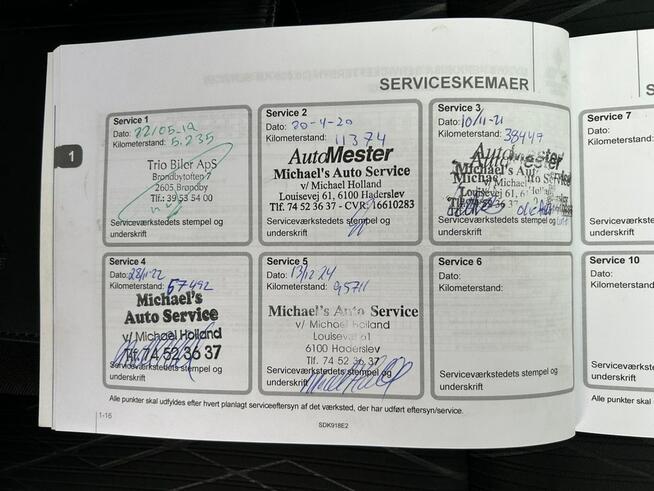 SERVICESKEMAER
1
Service 1
Dato: 22/05.19
Kilometerstand: 5.235
Trio Biler ApS
Brøndbytoften 7
2605 Brøndby
Tlf.: 39 53 54 00
Serviceværkstedets stempel og
underskrift
Service 2
Dato: 20-4-20
Kilometerstand: 11374
AutoMester
Michael's Auto Service
v/ Michael Holland
Louisevej 61, 6100 Haderslev
Tlf. 74 52 36 37 - CVR. 16610283
Serviceværkstedets stempel og
underskrift
Service 3
Dato: 10/11-21
Kilometerstand: 38449
AutoMester
Michael's Auto Service
Michael Holland
Louisevej 61,
Serviceværkstedets stempel og
underskrift
Service 7
Dato:
Kilometerstand:
Serviceværkstedets
underskrift
Service 4
Dato: 28/11-22
Kilometerstand: 67492
Michael's
Auto Service
v/ Michael Holland
Tlf. 74 52 36 37
Serviceværkstedets stempel og
underskrift
Service 5
Dato: 13/12 24
Kilometerstand: 95711
Michael's Auto Service
v/ Michael Holland
Louisevej 61
6100 Haderslev
Tlf. 74 52 36 37
Serviceværkstedets stempel og
underskrift
Service 6
Dato:
Kilometerstand:
Serviceværkstedets stempel og
underskrift
Service 10
Dato:
Kilometerstand:
Serviceværkstedets
underskrift
Alle punkter skal udfyldes efter hvert planlagt serviceeftersyn af det værksted, der har udført eftersyn/service.
Alle punkter skal
1-16
SDK918E2